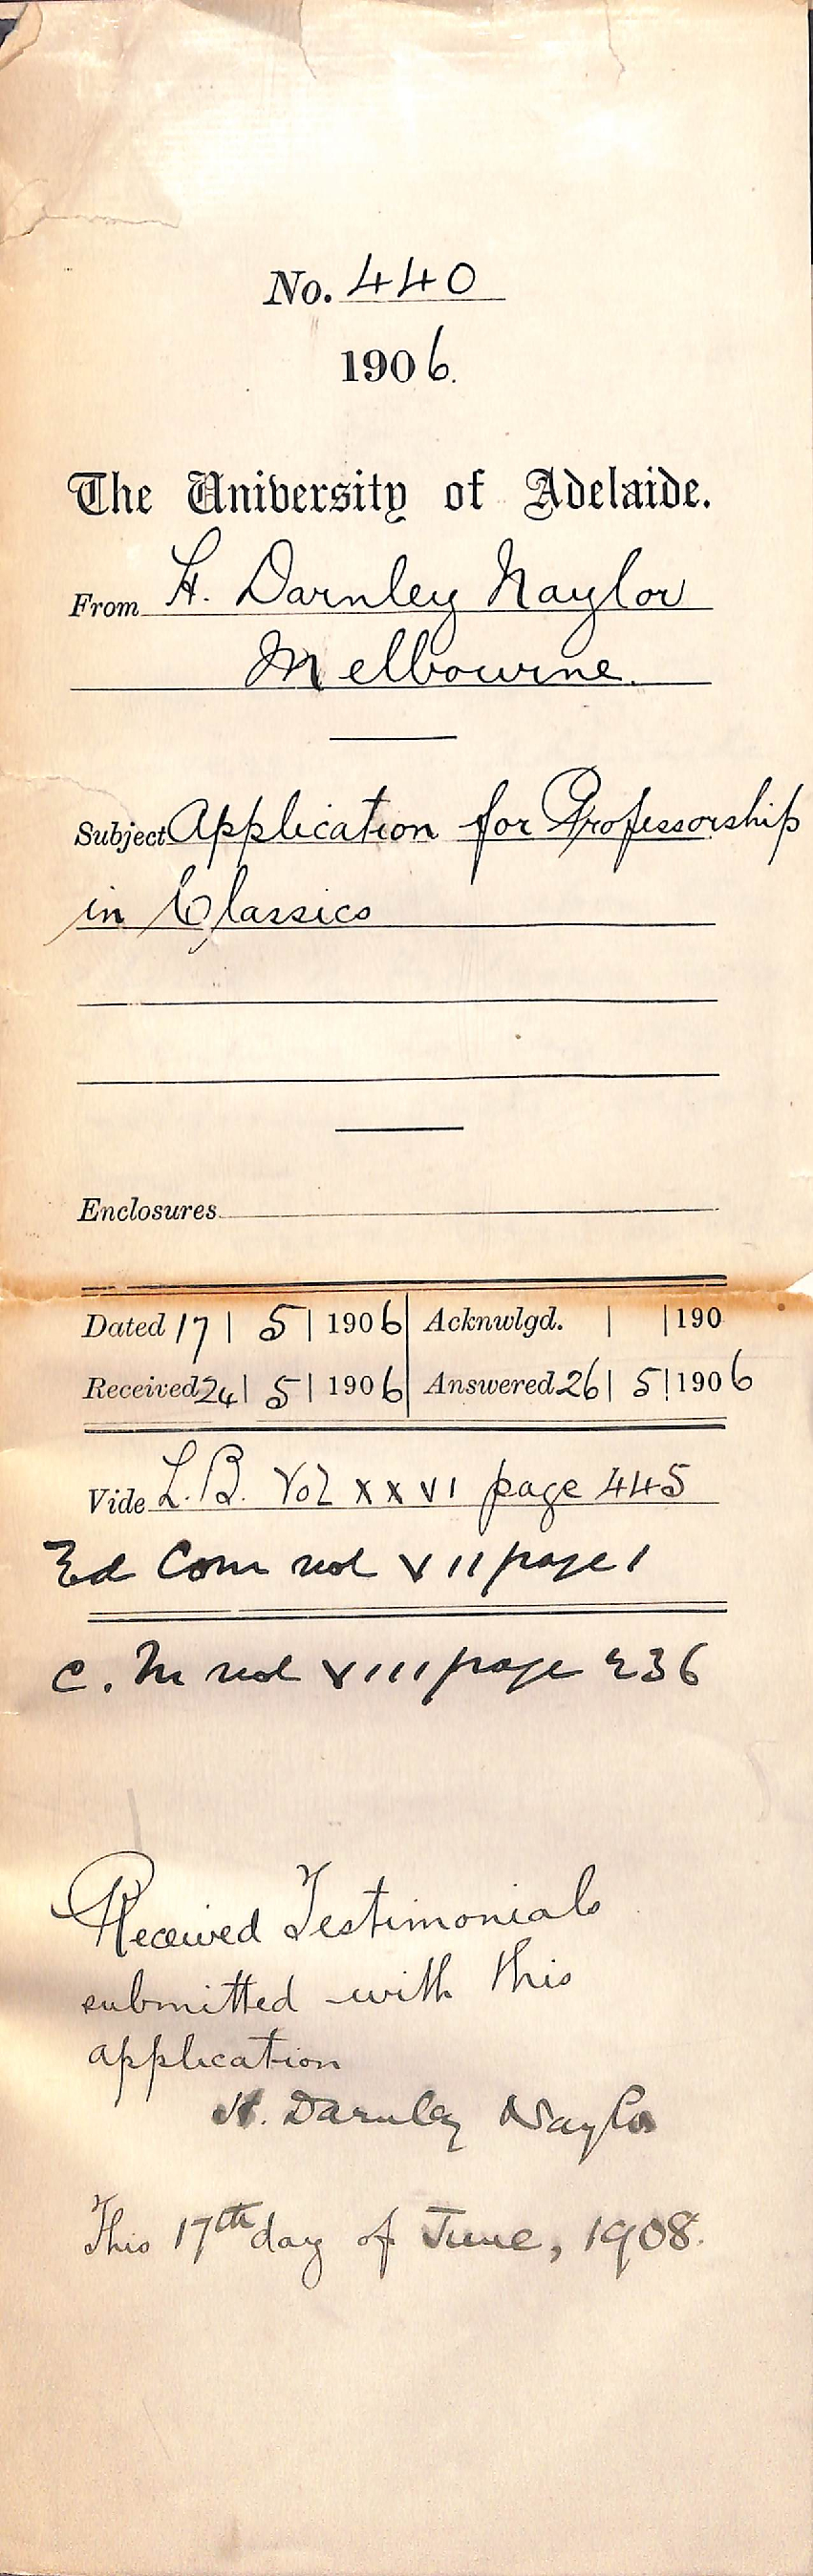 No. 440
1906.
The University of Adelaide.
From H. Darnley Naylor
Melbourne.
Subject Application for Professorship
in Classics
Enclosures
Dated 17 | 5 | 1906 | Acknwlgd. | | 190
Received 24 | 5 | 1906 | Answered 26 | 5 | 1906
Vide L.B. Vol XXVI page 445
Ed Com vol VII page 1
C. M vol VIII page 236
Received Testimonials
submitted with this
application
H. Darnley Naylor
This 17th day of June, 1908.